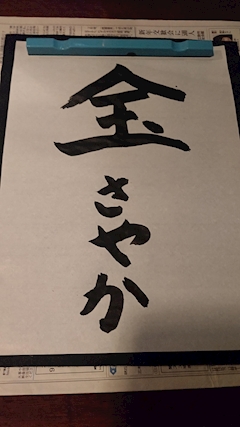 金
さやか